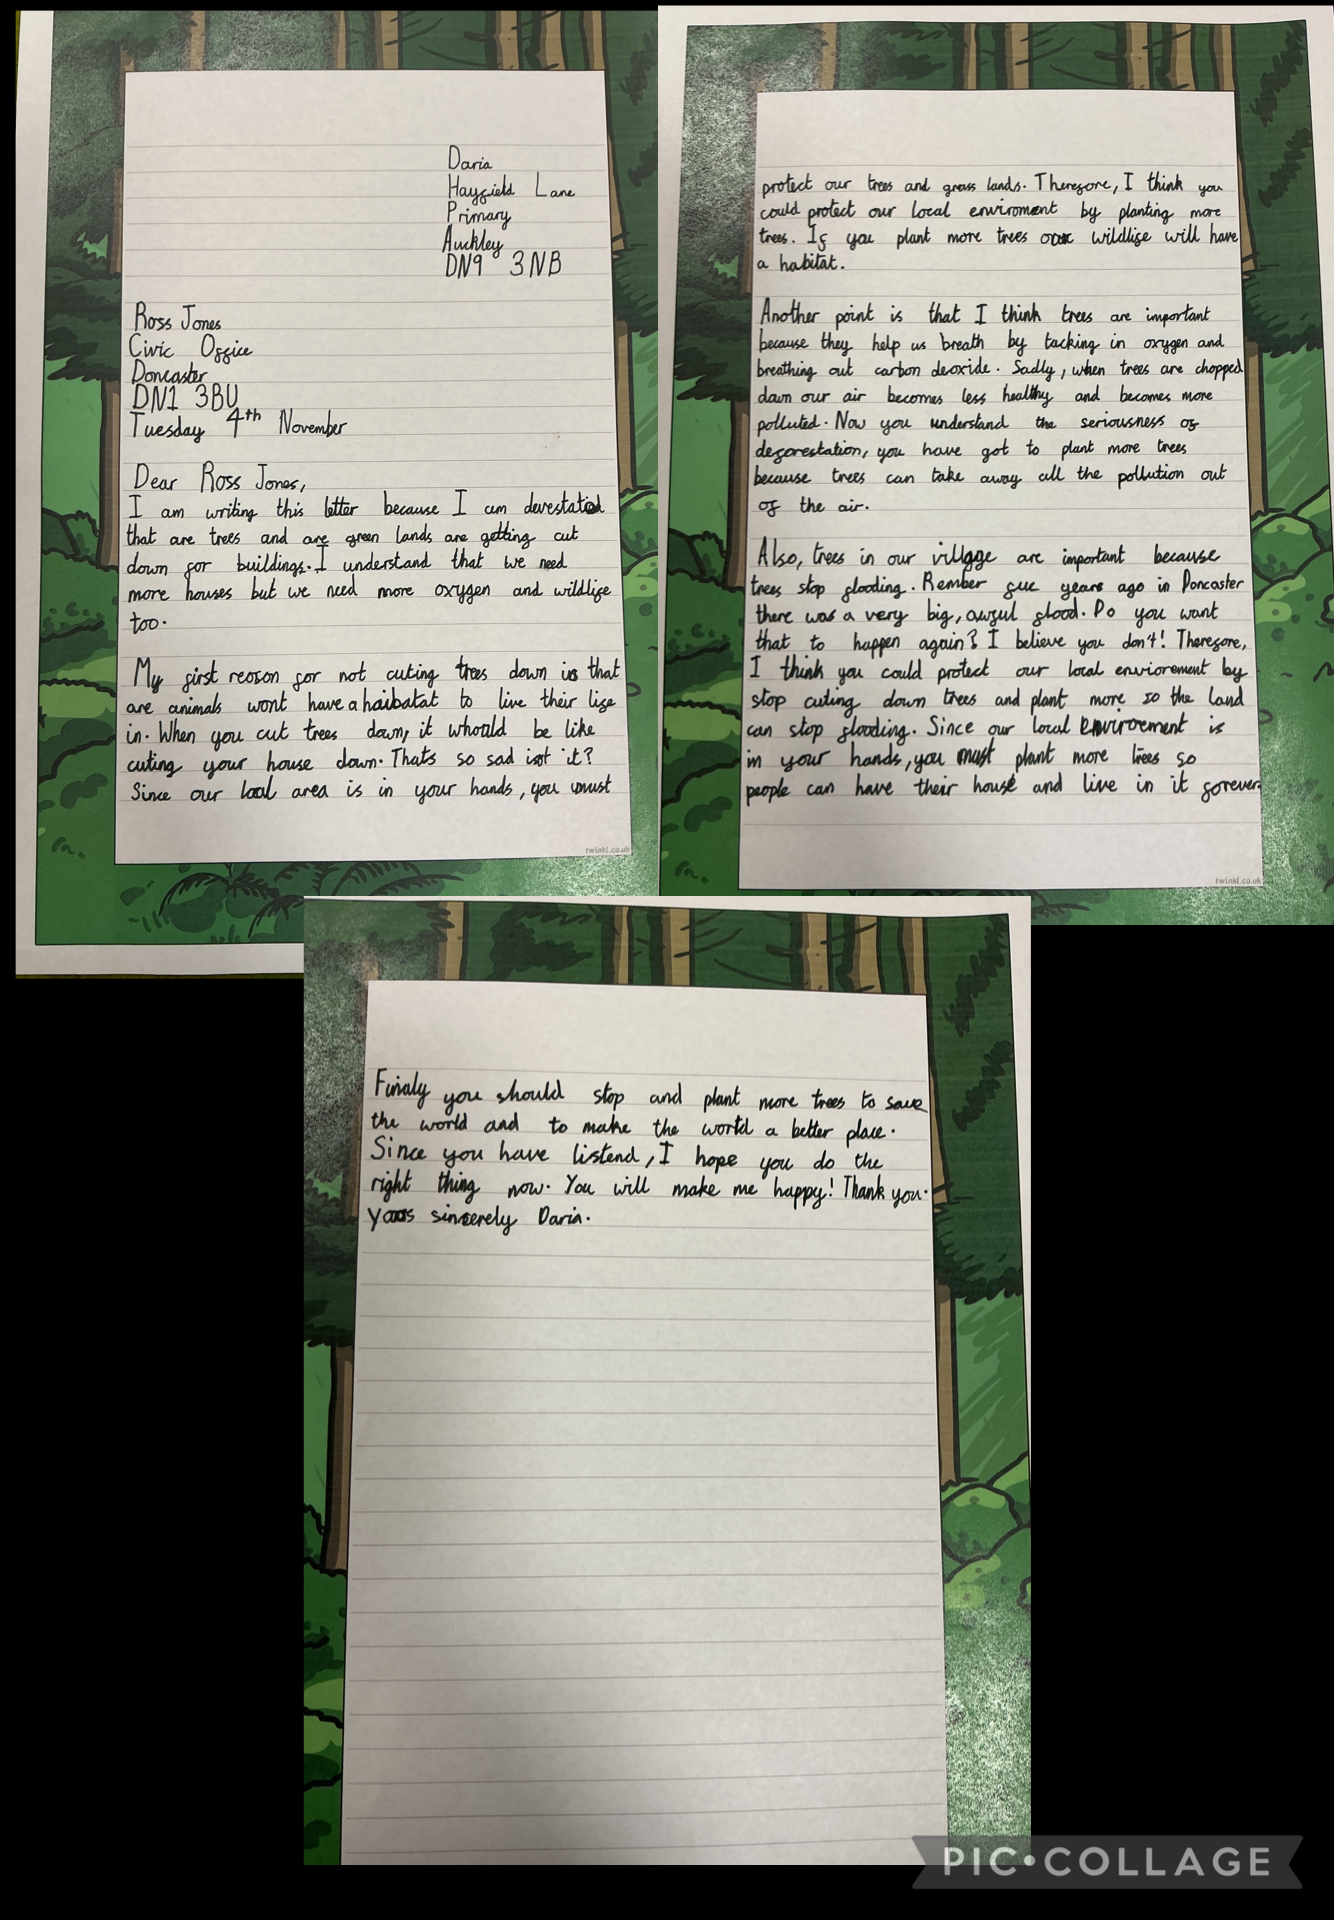 Daria
Hayfield Lane
Primary
Auckley
DN9 3NB
Ross Jones
Civic Office
Doncaster
DN1 3BU
Tuesday 4th November
Dear Ross Jones,
I am writing this letter because I am devestated
that are trees and are green lands are getting cut
down for buildings. I understand that we need
more houses but we need more oxygen and wildlife
too.
My first reason for not cuting trees down is that
are animals wont have a haibatat to live their life
in. When you cut trees down, it whould be like
cuting your house down. Thats so sad isnt it?
Since our local area is in your hands, you must
twinkl.co.uk
protect our trees and grass lands. Therefore, I think you
could protect our local enviroment by planting more
trees. If you plant more trees our wildlife will have
a habitat.
Another point is that I think trees are important
because they help us breath by tacking in oxygen and
breathing out carbon deoxide. Sadly, when trees are chopped
down our air becomes less healthy and becomes more
polluted. Now you understand the seriousness of
deforestation, you have got to plant more trees
because trees can take away all the pollution out
of the air.
Also, trees in our village are important because
trees stop flooding. Rember five years ago in Doncaster
there was a very big, awful flood. Do you want
that to happen again? I believe you don't! Therefore,
I think you could protect our local enviorement by
stop cuting down trees and plant more so the land
can stop flooding. Since our local enviroement is
in your hands, you must plant more trees so
people can have their house and live in it forever.
twinkl.co.uk
Finaly you should stop and plant more trees to save
the world and to make the world a better place.
Since you have listend, I hope you do the
right thing now. You will make me happy! Thank you.
yours sincerely Daria.
PIC•COLLAGE